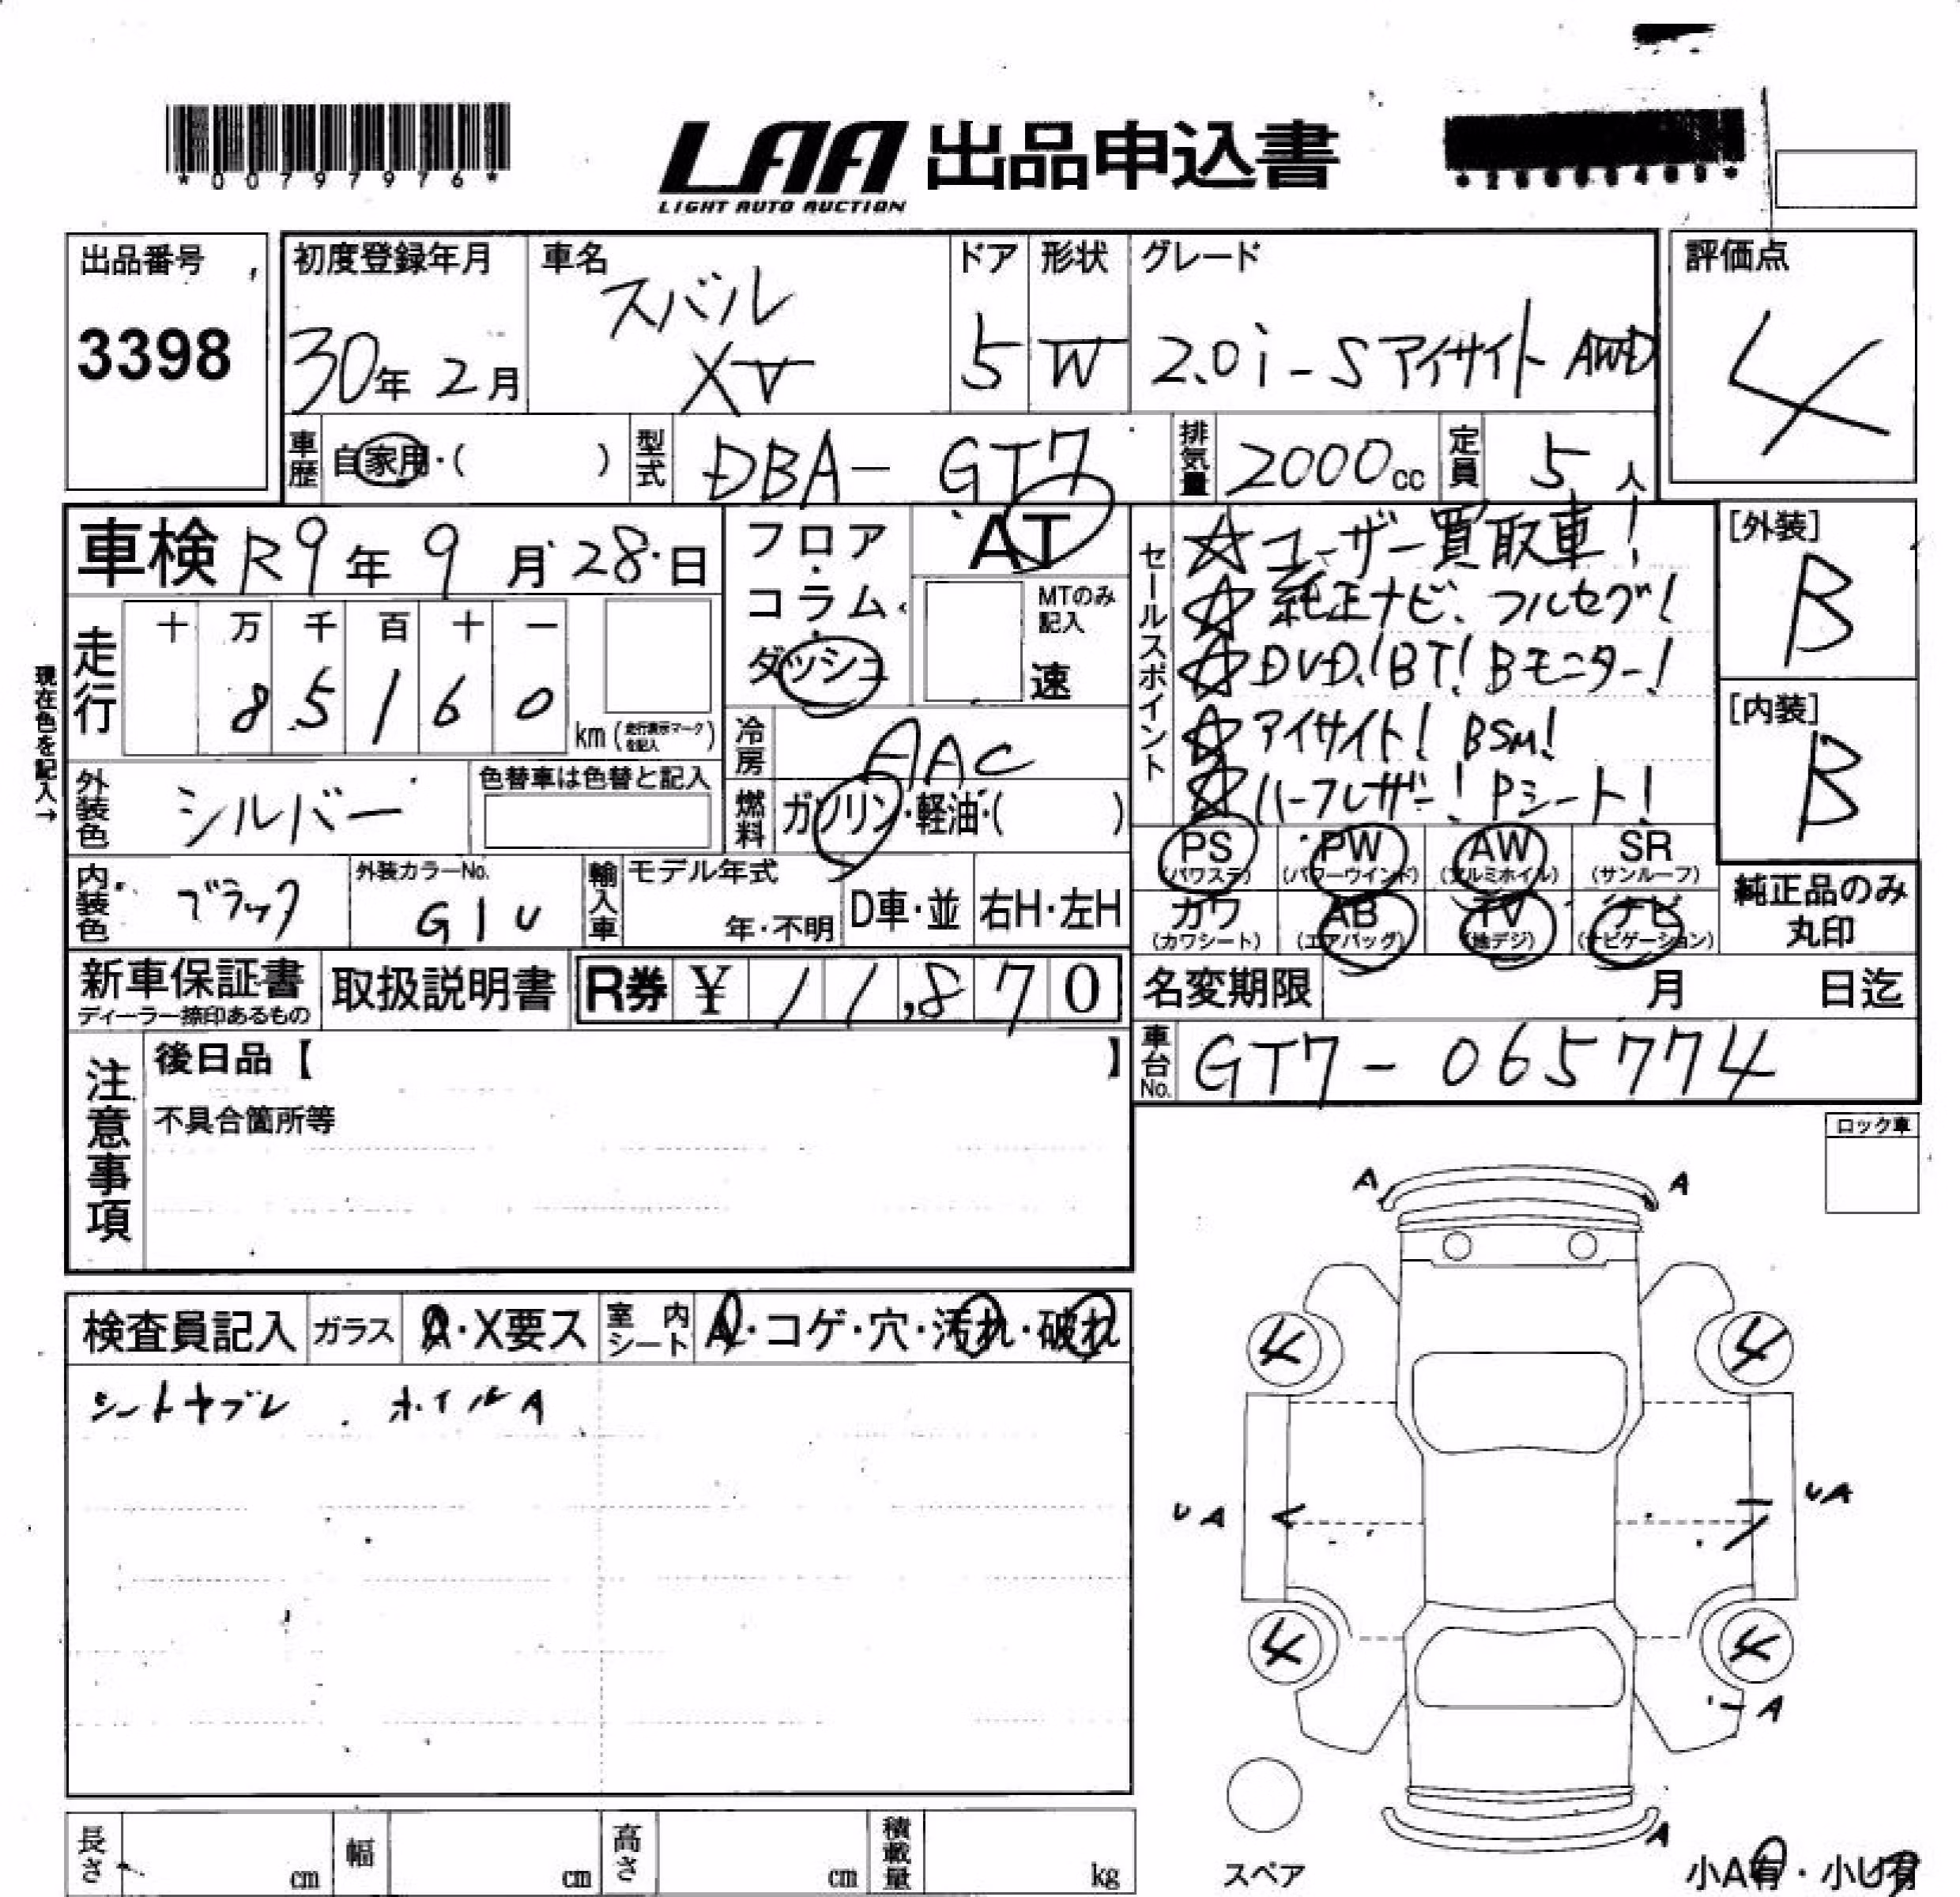 *00797976*
LAA 出品申込書
LIGHT AUTO AUCTION
出品番号
3398
初度登録年月
30年 2月
車名
スバル
XV
ドア
5
形状
W
グレード
2.0i-S アイサイト AWD
評価点
4
車歴 自家用・( )
型式 DBA- GT7
排気量 2000cc
定員 5人
車検 R9年 9月 28日
フロア・コラム・ダッシュ
AT
MTのみ記入
速
セールスポイント
☆ユーザー買取車!
☆純正ナビ、フルセグ!
☆DVD!BT!Bモニター!
☆アイサイト! BSM!
☆ハーフレザー! Pシート!
[外装]
B
[内装]
B
現在色を記入→
走行
十 万 千 百 十 一
8 5 1 6 0
km (走行表示マークを記入)
冷房 AAC
外装色 シルバー
色替車は色替と記入
燃料 ガソリン・軽油・( )
PS (パワステ)
PW (パワーウインド)
AW (アルミホイル)
SR (サンルーフ)
カワ (カワシート)
AB (エアバッグ)
TV (地デジ)
ナビ (ナビゲーション)
純正品のみ
丸印
内装色 ブラック
外装カラーNo.
G1U
輸入車
モデル年式
年・不明
D車・並
右H・左H
新車保証書
ディーラー捺印あるもの
取扱説明書
R券 ¥ 11,870
名変期限 月 日迄
車台No. GT7-065774
注意事項
後日品【 】
不具合箇所等
ロック車
検査員記入
ガラス A・X要ス
室内シート A・コゲ・穴・汚れ・破れ
シートヤブレ . ホイルA
A A
4 4
UA UA
4 4
A
A
スペア
小A有・小U有
長さ cm
幅 cm
高さ cm
積載量 kg